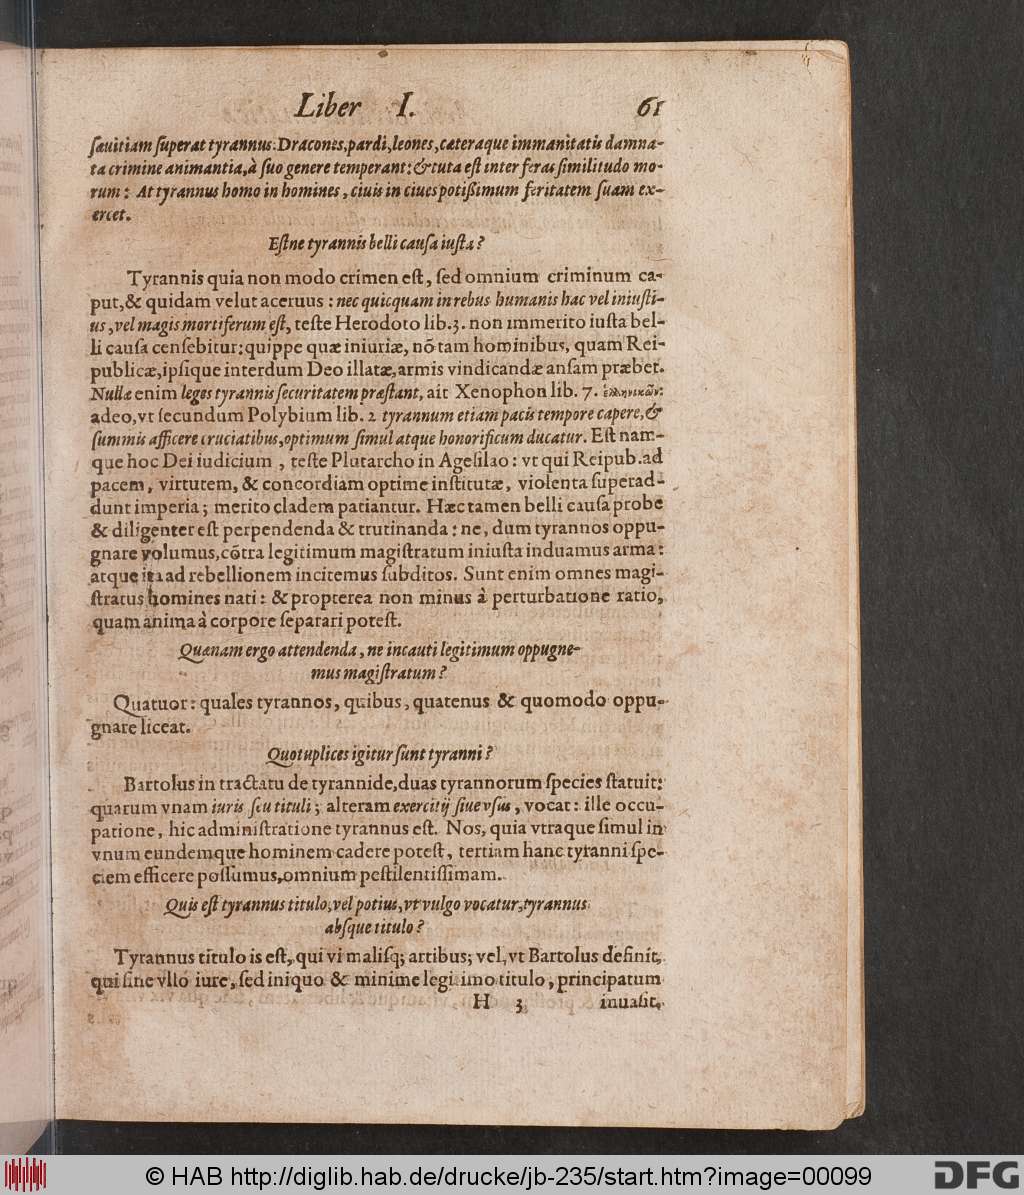 Liber I. 61
ſæuitiam ſuperat tyrannus: Dracones, pardi, leones, cæteraque immanitatis damna-
ta crimine animantia, à ſuo genere temperant: & tuta eſt inter feras ſimilitudo mo-
rum: At tyrannus homo in homines, ciuis in ciues potißimum feritatem ſuam ex-
ercet.
Eſtne tyrannis belli cauſa iuſta?
Tyrannis quia non modo crimen eſt, ſed omnium criminum ca-
put, & quidam velut aceruus: nec quicquam in rebus humanis hac vel iniuſti-
us, vel magis mortiferum eſt, teſte Herodoto lib. 3. non immerito iuſta bel-
li cauſa cenſebitur: quippe quæ iniuriæ, nō tam hominibus, quam Rei-
publicæ, ipſique interdum Deo illatæ, armis vindicandæ anſam præbet.
Nullæ enim leges tyrannis ſecuritatem præſtant, ait Xenophon lib. 7. ἑλληνικῶν:
adeo, vt ſecundum Polybium lib. 2 tyrannum etiam pacis tempore capere, &
ſummis afficere cruciatibus, optimum ſimul atque honorificum ducatur. Eſt nam-
que hoc Dei iudicium, teſte Plutarcho in Ageſilao: vt qui Reipub. ad
pacem, virtutem, & concordiam optime inſtitutæ, violenta ſuperad-
dunt imperia; merito cladem patiantur. Hæc tamen belli cauſa probe
& diligenter eſt perpendenda & trutinanda: ne, dum tyrannos oppu-
gnare volumus, cōtra legitimum magiſtratum iniuſta induamus arma:
atque ita ad rebellionem incitemus ſubditos. Sunt enim omnes magi-
ſtratus homines nati: & propterea non minus à perturbatione ratio,
quam anima à corpore ſeparari poteſt.
Quænam ergo attendenda, ne incauti legitimum oppugne-
mus magiſtratum?
Quatuor: quales tyrannos, quibus, quatenus & quomodo oppu-
gnare liceat.
Quotuplices igitur ſunt tyranni?
Bartolus in tractatu de tyrannide, duas tyrannorum ſpecies ſtatuit:
quarum vnam iuris ſeu tituli; alteram exercitij ſiue vſus, vocat: ille occu-
patione, hic adminiſtratione tyrannus eſt. Nos, quia vtraque ſimul in
vnum eundemque hominem cadere poteſt, tertiam hanc tyranni ſpe-
ciem efficere poſſumus, omnium peſtilentiſſimam.
Quis eſt tyrannus titulo, vel potius, vt vulgo vocatur, tyrannus
abſque titulo?
Tyrannus titulo is eſt, qui vi maliſq; artibus; vel, vt Bartolus definit,
qui ſine vllo iure, ſed iniquo & minime legitimo titulo, principatum
H 3 inuaſit,
© HAB http://diglib.hab.de/drucke/jb-235/start.htm?image=00099
DFG